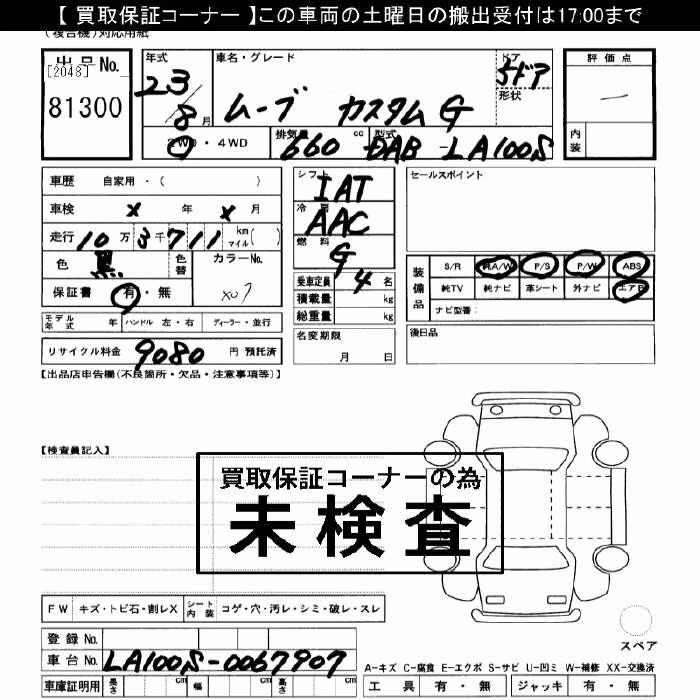 【 買取保証コーナー 】この車両の土曜日の搬出受付は17:00まで
(複合機)対応用紙
出品No.
[2048]
81300
年式
23/8月
車名・グレード
ムーブ カスタム G
ドア
5ドア
形状
評価点
—
内装
2WD・4WD
排気量
660 cc
型式
DAB-LA100S
車歴 自家用・( )
車検 X 年 X 月
走行 10万3千711 km マイル( )
色 黒 色替
カラーNo.
X07
保証書 有・無
モデル年式 年 ハンドル 左・右 ディーラー・並行
リサイクル料金 9080 円 預託済
シフト
IAT
冷房
AAC
燃料
G
乗車定員 4 名
積載量 kg
総重量 kg
名変期限
月 日
セールスポイント
装備品
S/R 純A/W P/S P/W ABS
純TV 純ナビ 革シート 外ナビ エアB
ナビ型番:
後日品
【出品店申告欄(不良箇所・欠品・注意事項等)】
【検査員記入】
買取保証コーナーの為
未検査
FW キズ・トビ石・割レX シート内装 コゲ・穴・汚レ・シミ・破レ・スレ
登録 No.
車台 No. LA100S-0067907
車庫証明用 長さ cm 幅 cm 高さ cm
スペア
A-キズ C-腐食 E-エクボ S-サビ U-凹ミ W-補修 XX-交換済
工具 有・無 ジャッキ 有・無